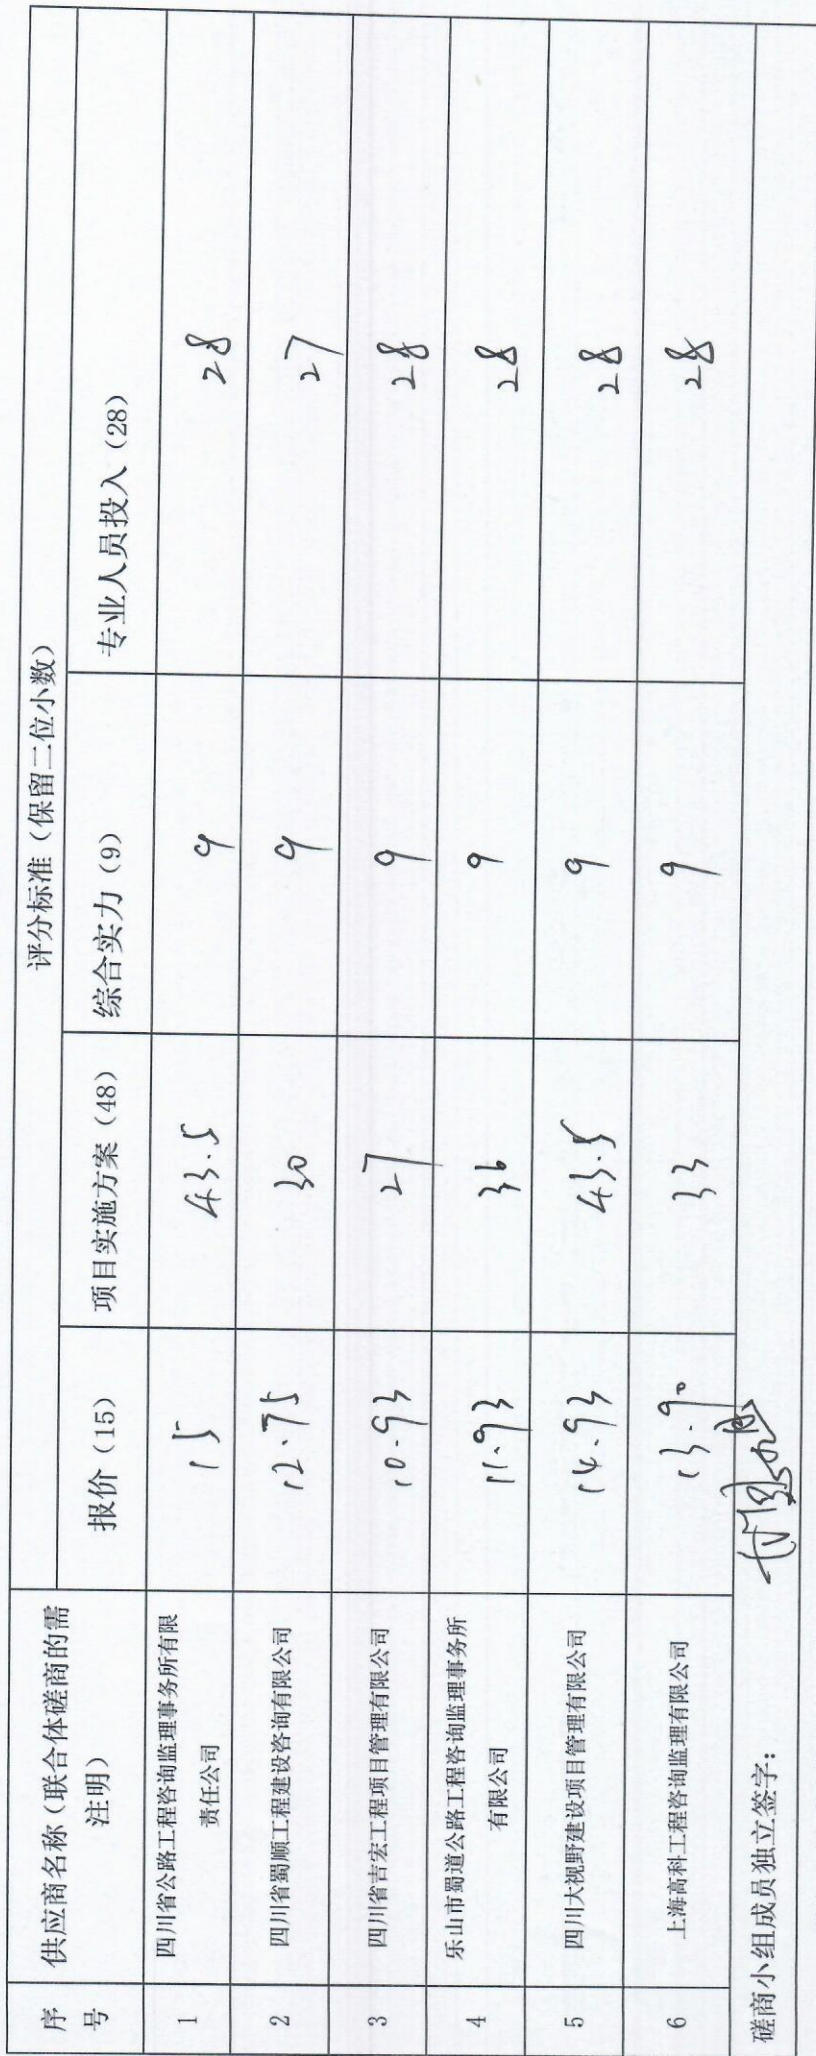 评分标准（保留二位小数）
序号 供应商名称（联合体磋商的需注明） 报价（15） 项目实施方案（48） 综合实力（9） 专业人员投入（28）
1 四川省公路工程咨询监理事务所有限责任公司 15 43.5 9 28
2 四川省蜀顺工程建设咨询有限公司 12.75 30 9 27
3 四川省吉宏工程项目管理有限公司 10.93 27 9 28
4 乐山市蜀道公路工程咨询监理事务所有限公司 11.93 36 9 28
5 四川大视野建设项目管理有限公司 14.93 43.5 9 28
6 上海高科工程咨询监理有限公司 13.90 33 9 28
磋商小组成员独立签字：